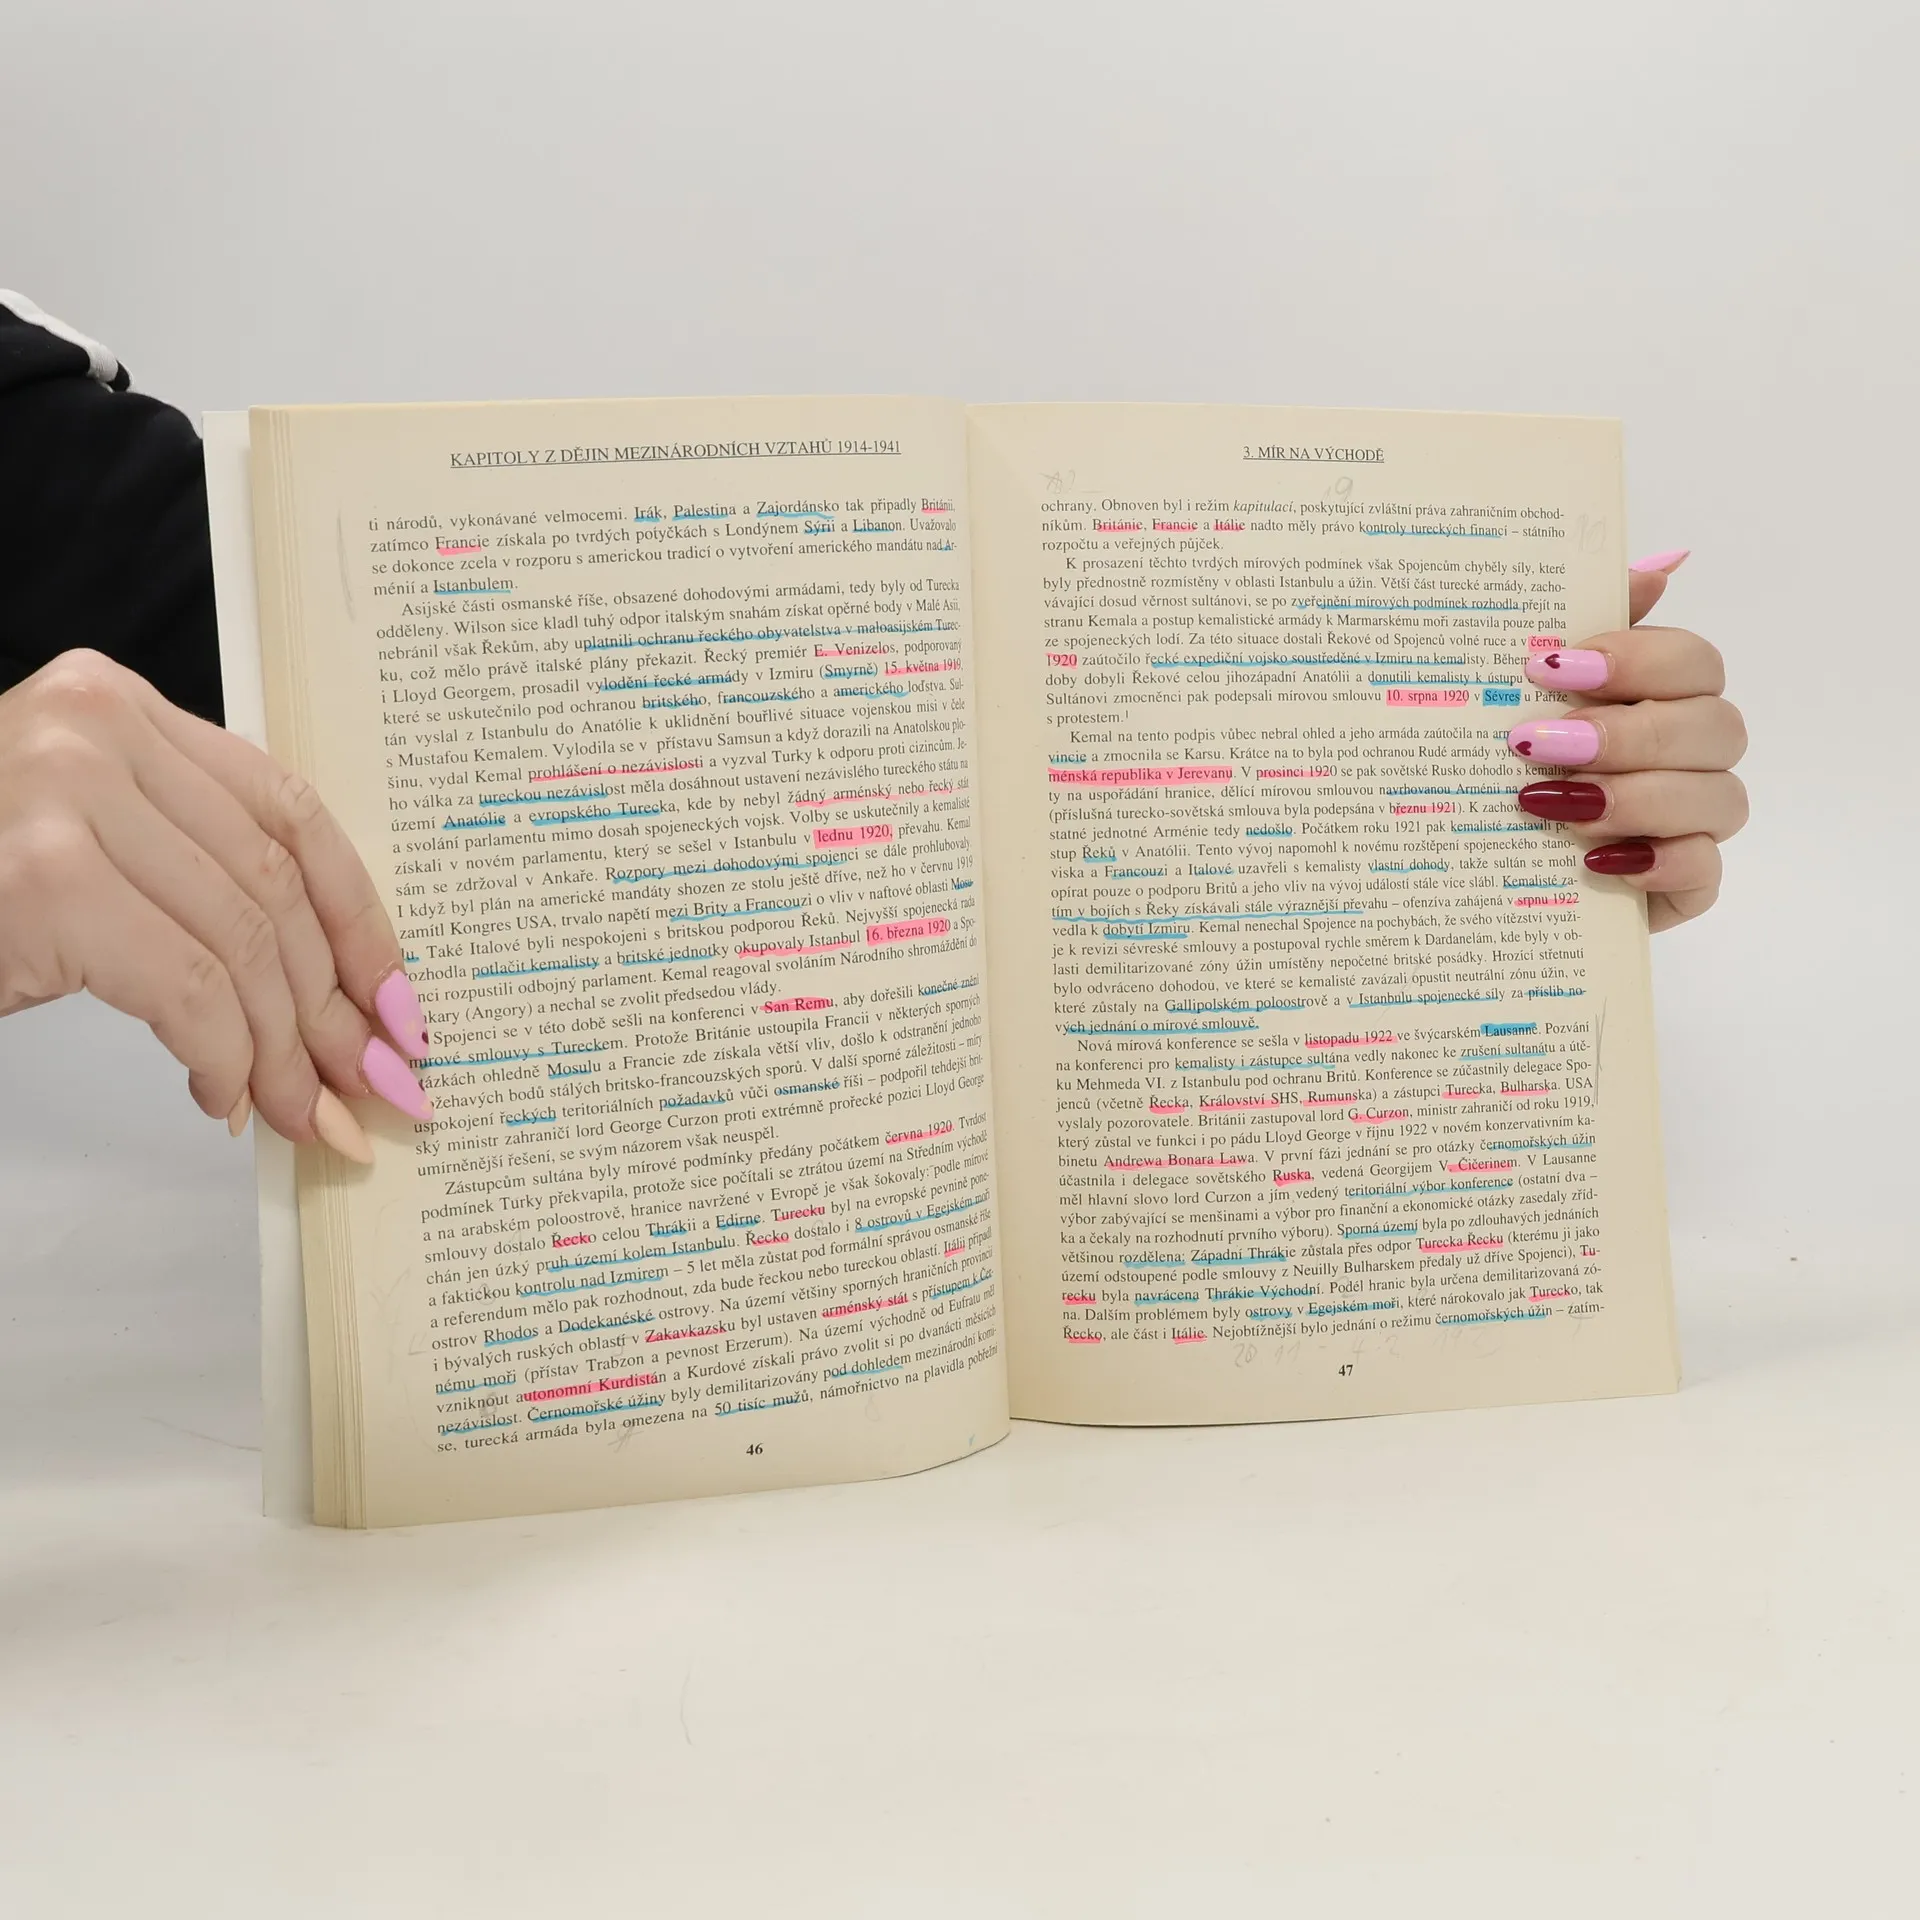 KAPITOLY Z DĚJIN MEZINÁRODNÍCH VZTAHŮ 1914-1941
ti národů, vykonávané velmocemi. Irák, Palestina a Zajordánsko tak připadly Británii,
zatímco Francie získala po tvrdých potyčkách s Londýnem Sýrii a Libanon. Uvažovalo
se dokonce zcela v rozporu s americkou tradicí o vytvoření amerického mandátu nad Ar-
ménií a Istanbulem.
Asijské části osmanské říše, obsazené dohodovými armádami, tedy byly od Turecka
odděleny. Wilson sice kladl tuhý odpor italským snahám získat opěrné body v Malé Asii,
nebránil však Řekům, aby uplatnili ochranu řeckého obyvatelstva v maloasijském Turec-
ku, což mělo právě italské plány překazit. Řecký premiér E. Venizelos, podporovaný
i Lloyd Georgem, prosadil vylodění řecké armády v Izmiru (Smyrně) 15. května 1919,
které se uskutečnilo pod ochranou britského, francouzského a amerického loďstva. Sul-
tán vyslal z Istanbulu do Anatólie k uklidnění bouřlivé situace vojenskou misi v čele
s Mustafou Kemalem. Vylodila se v přístavu Samsun a když dorazili na Anatolskou plo-
šinu, vydal Kemal prohlášení o nezávislosti a vyzval Turky k odporu proti cizincům. Je-
ho válka za tureckou nezávislost měla dosáhnout ustavení nezávislého tureckého státu na
území Anatólie a evropského Turecka, kde by nebyl žádný arménský nebo řecký stát
a svolání parlamentu mimo dosah spojeneckých vojsk. Volby se uskutečnily a kemalisté
získali v novém parlamentu, který se sešel v Istanbulu v lednu 1920, převahu. Kemal
sám se zdržoval v Ankaře. Rozpory mezi dohodovými spojenci se dále prohlubovaly.
I když byl plán na americké mandáty shozen ze stolu ještě dříve, než ho v červnu 1919
zamítl Kongres USA, trvalo napětí mezi Brity a Francouzi o vliv v naftové oblasti Mosu-
lu. Také Italové byli nespokojeni s britskou podporou Řeků. Nejvyšší spojenecká rada
rozhodla potlačit kemalisty a britské jednotky okupovaly Istanbul 16. března 1920 a Spo-
nci rozpustili odbojný parlament. Kemal reagoval svoláním Národního shromáždění do
nkary (Angory) a nechal se zvolit předsedou vlády.
Spojenci se v této době sešli na konferenci v San Remu, aby dořešili konečné znění
mírové smlouvy s Tureckem. Protože Británie ustoupila Francii v některých sporných
tázkách ohledně Mosulu a Francie zde získala větší vliv, došlo k odstranění jednoho
ožehavých bodů stálých britsko-francouzských sporů. V další sporné záležitosti – míry
uspokojení řeckých teritoriálních požadavků vůči osmanské říši – podpořil tehdejší brit-
ský ministr zahraničí lord George Curzon proti extrémně prořecké pozici Lloyd George
umírněnější řešení, se svým názorem však neuspěl.
Zástupcům sultána byly mírové podmínky předány počátkem června 1920. Tvrdost
podmínek Turky překvapila, protože sice počítali se ztrátou území na Středním východě
a na arabském poloostrově, hranice navržené v Evropě je však šokovaly: podle mírové
smlouvy dostalo Řecko celou Thrákii a Edirne. Turecku byl na evropské pevnině pone-
chán jen úzký pruh území kolem Istanbulu. Řecko dostalo i 8 ostrovů v Egejském moři
a faktickou kontrolu nad Izmirem – 5 let měla zůstat pod formální správou osmanské říše
a referendum mělo pak rozhodnout, zda bude řeckou nebo tureckou oblastí. Itálii připadl
ostrov Rhodos a Dodekanéské ostrovy. Na území většiny sporných hraničních provincií
i bývalých ruských oblastí v Zakavkazsku byl ustaven arménský stát s přístupem k Čer-
nému moři (přístav Trabzon a pevnost Erzerum). Na území východně od Eufratu měl
vzniknout autonomní Kurdistán a Kurdové získali právo zvolit si po dvanácti měsících
nezávislost. Černomořské úžiny byly demilitarizovány pod dohledem mezinárodní komi-
se, turecká armáda byla omezena na 50 tisíc mužů, námořnictvo na plavidla pobřežní
46
3. MÍR NA VÝCHODĚ
ochrany. Obnoven byl i režim kapitulací, poskytující zvláštní práva zahraničním obchod-
níkům. Británie, Francie a Itálie nadto měly právo kontroly tureckých financí – státního
rozpočtu a veřejných půjček.
K prosazení těchto tvrdých mírových podmínek však Spojencům chyběly síly, které
byly přednostně rozmístěny v oblasti Istanbulu a úžin. Větší část turecké armády, zacho-
vávající dosud věrnost sultánovi, se po zveřejnění mírových podmínek rozhodla přejít na
stranu Kemala a postup kemalistické armády k Marmarskému moři zastavila pouze palba
ze spojeneckých lodí. Za této situace dostali Řekové od Spojenců volné ruce a v červnu
1920 zaútočilo řecké expediční vojsko soustředěné v Izmiru na kemalisty. Během
doby dobyli Řekové celou jihozápadní Anatólii a donutili kemalisty k ústupu
Sultánovi zmocněnci pak podepsali mírovou smlouvu 10. srpna 1920 v Sévres u Paříže
s protestem.¹
Kemal na tento podpis vůbec nebral ohled a jeho armáda zaútočila na
vincie a zmocnila se Karsu. Krátce na to byla pod ochranou Rudé armády
ménská republika v Jerevanu. V prosinci 1920 se pak sovětské Rusko dohodlo s kemalis-
ty na uspořádání hranice, dělící mírovou smlouvou navrhovanou Arménii na
(příslušná turecko-sovětská smlouva byla podepsána v březnu 1921). K zachov
statné jednotné Arménie tedy nedošlo. Počátkem roku 1921 pak kemalisté zastavili po-
stup Řeků v Anatólii. Tento vývoj napomohl k novému rozštěpení spojeneckého stano-
viska a Francouzi a Italové uzavřeli s kemalisty vlastní dohody, takže sultán se mohl
opírat pouze o podporu Britů a jeho vliv na vývoj událostí stále více slábl. Kemalisté za-
tím v bojích s Řeky získávali stále výraznější převahu – ofenzíva zahájená v srpnu 1922
vedla k dobytí Izmiru. Kemal nenechal Spojence na pochybách, že svého vítězství využi-
je k revizi sévreské smlouvy a postupoval rychle směrem k Dardanelám, kde byly v ob-
lasti demilitarizované zóny úžin umístěny nepočetné britské posádky. Hrozící střetnutí
bylo odvráceno dohodou, ve které se kemalisté zavázali opustit neutrální zónu úžin, ve
které zůstaly na Gallipolském poloostrově a v Istanbulu spojenecké síly za příslib no-
vých jednání o mírové smlouvě.
Nová mírová konference se sešla v listopadu 1922 ve švýcarském Lausanne. Pozvání
na konferenci pro kemalisty i zástupce sultána vedly nakonec ke zrušení sultanátu a útě-
ku Mehmeda VI. z Istanbulu pod ochranu Britů. Konference se zúčastnily delegace Spo-
jenců (včetně Řecka, Království SHS, Rumunska) a zástupci Turecka, Bulharska. USA
vyslaly pozorovatele. Británii zastupoval lord G. Curzon, ministr zahraničí od roku 1919,
který zůstal ve funkci i po pádu Lloyd George v říjnu 1922 v novém konzervativním ka-
binetu Andrewa Bonara Lawa. V první fázi jednání se pro otázky černomořských úžin
účastnila i delegace sovětského Ruska, vedená Georgijem V. Čičerinem. V Lausanne
měl hlavní slovo lord Curzon a jím vedený teritoriální výbor konference (ostatní dva –
výbor zabývající se menšinami a výbor pro finanční a ekonomické otázky zasedaly zříd-
ka a čekaly na rozhodnutí prvního výboru). Sporná území byla po zdlouhavých jednáních
většinou rozdělena: Západní Thrákie zůstala přes odpor Turecka Řecku (kterému ji jako
území odstoupené podle smlouvy z Neuilly Bulharskem předaly už dříve Spojenci), Tu-
recku byla navrácena Thrákie Východní. Podél hranic byla určena demilitarizovaná zó-
na. Dalším problémem byly ostrovy v Egejském moři, které nárokovalo jak Turecko, tak
Řecko, ale část i Itálie. Nejobtížnější bylo jednání o režimu černomořských úžin – zatím-
47